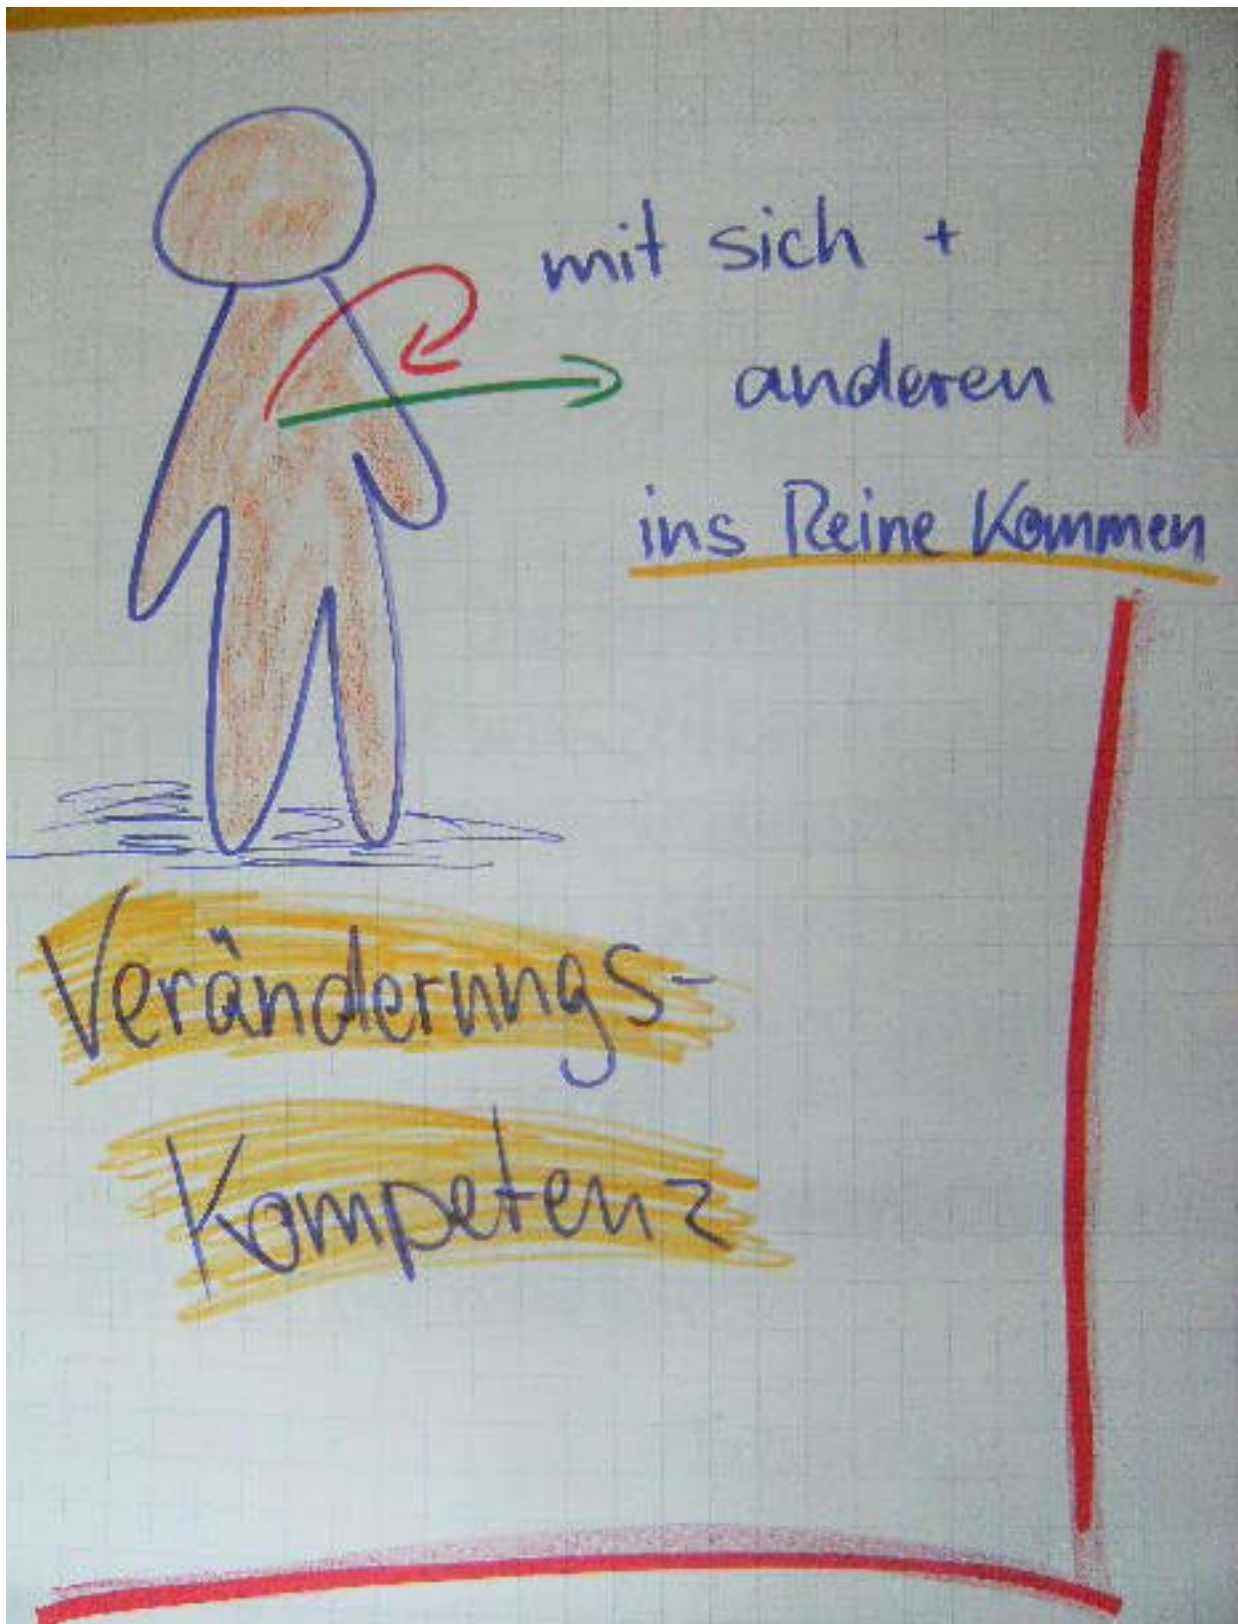 mit sich +
anderen
ins Reine Kommen
Veränderungs-
Kompetenz